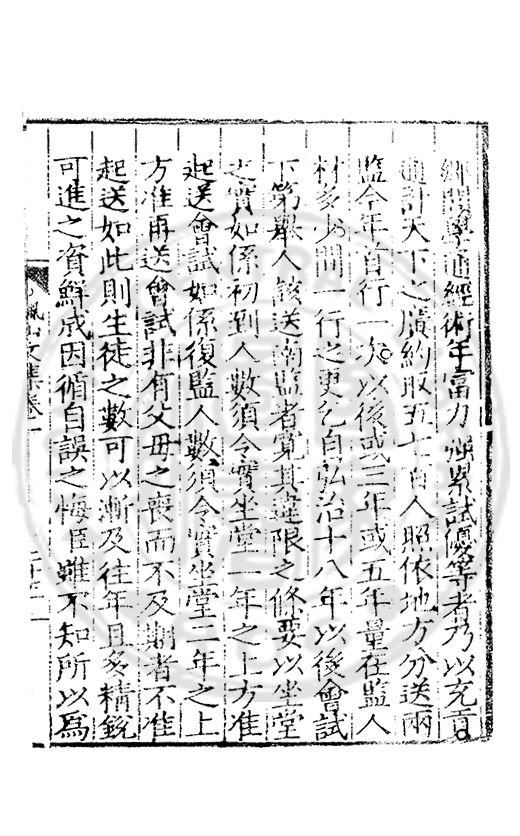 鄉間學通經術年富力強累試優等者乃以充貢
通計天下之廣約取五七百人照依地方分送兩
監今年首行一次以後或三年或五年量在監人
材多少間一行之更乞自弘治十八年以後會試
下第舉人該送南監者寬其違限之條要以坐堂
之實如係初到人數須令實坐堂一年之上方准
起送會試如係復監人數須令實坐堂二年之上
方准再送會試非有父母之喪而不及期者不准
起送如此則生徒之數可以漸及往年且多精銳
可進之資鮮或因循自誤之悔臣雖不知所以為
山文集卷一